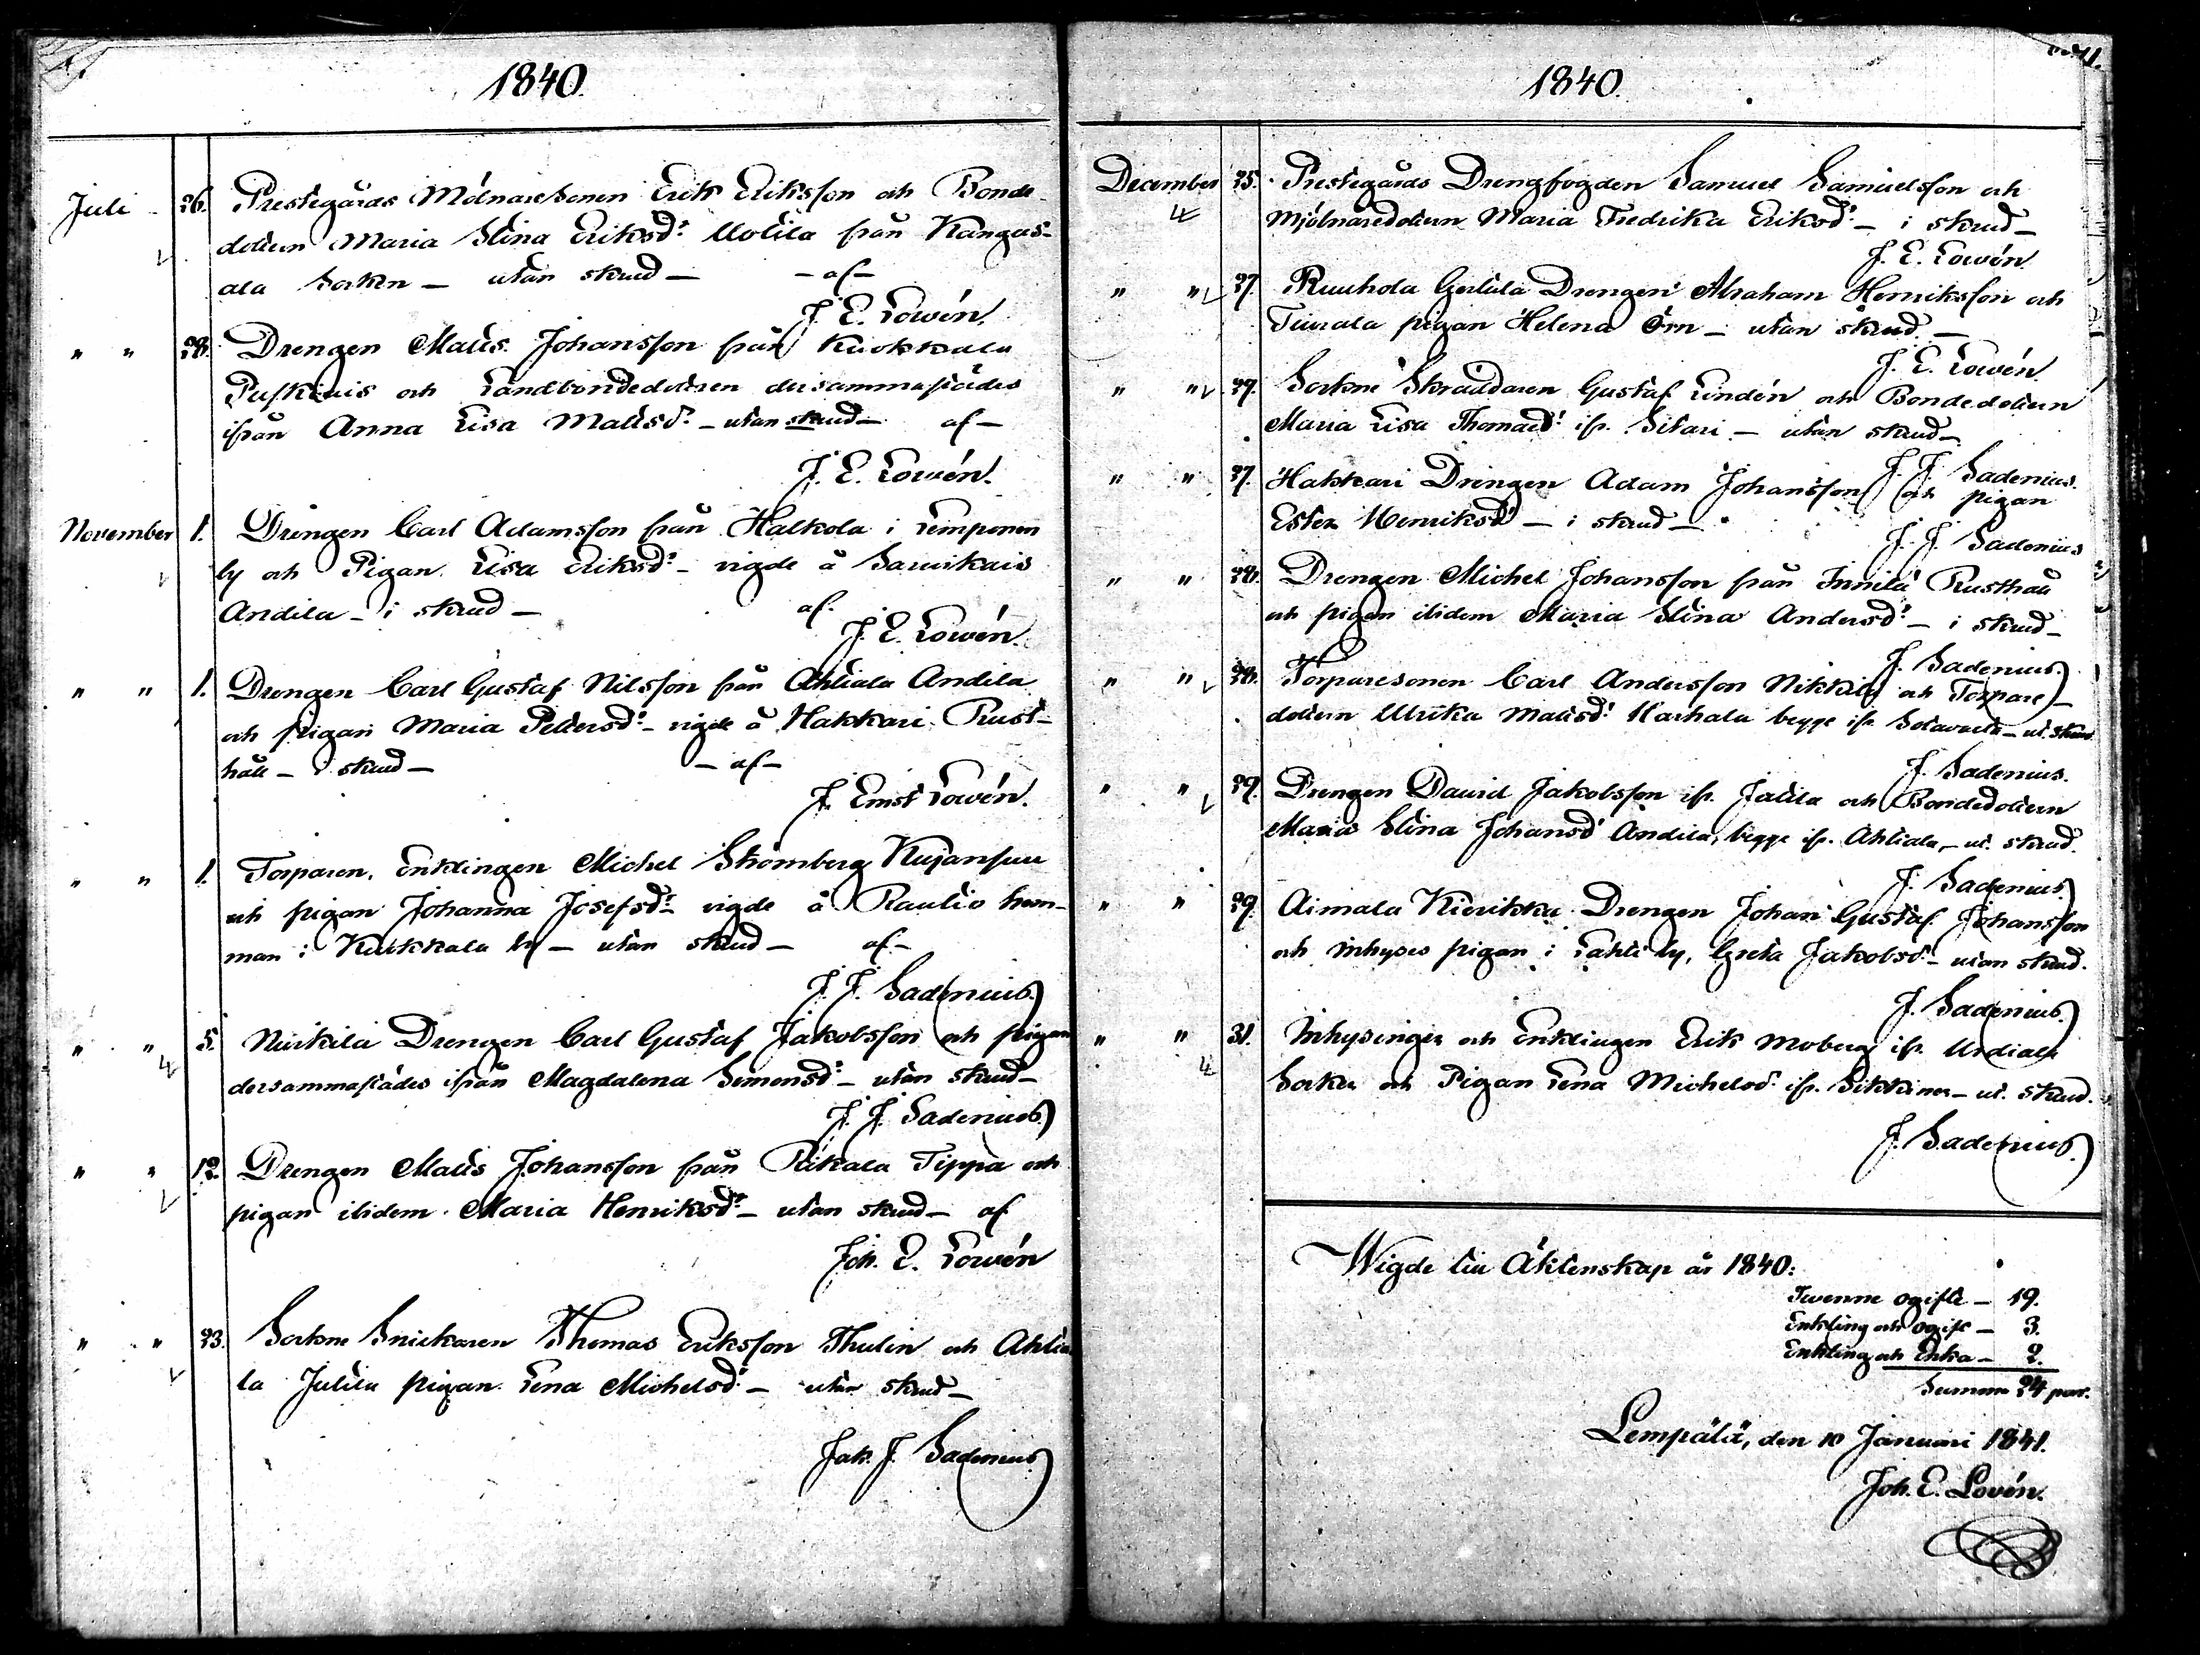 1840.
Juli 26. Prestegårds Mölnaresonen Erik Eriksson och Bonde-
dottren Maria Stina Eriksdr Uotila från Kangas-
ala Socken – utan skrud – – af –
J. E. Lowén.
" " 28. Drengen Matts Johansson från Kuokkala
och Landbondedottren dersammastädes
ifrån Anna Lisa Mattsdr – utan skrud – af –
J. E. Lowén.
November 1. Drengen Carl Adamsson från Halkola i Lempoinen
by och Pigan Lisa Eriksdr – vigde å
Andila – i skrud – af
J. E. Lowén.
" " 1. Drengen Carl Gustaf Nilsson från Ahtiala Andila
och pigan Maria Pettersdr – vigde å Hakkari Rust-
håll – i skrud – – af –
J. Ernst Lowén.
" " 1. Torparen, Enklingen Michel Strömberg Kujansuu
och pigan Johanna Josefsdr – vigde å Raulio hem-
man i Kuokkala by – utan skrud – af –
J. J. Sadenius.
" " 5. Nurkila Drengen Carl Gustaf Jakobsson och pigan
dersammastädes ifrån Magdalena Simonsdr – utan skrud –
J. J. Sadenius.
" " 12. Drengen Matts Johansson från Tippa och
pigan ibidem Maria Henriksdr – utan skrud – af
Joh. E. Lowén
" " 23. Sockne Snickaren Thomas Eriksson Thulin och Ahtia-
la Jutila pigan Lena Michelsdr – utan skrud –
Jak. J. Sadenius
1840.
December 25. Prestegårds Drengfogden Samuel Samuelsson och
Mjölnaredottren Maria Fredrika Eriksdr – i skrud –
J. E. Lowén.
" " 27. Ruuhola Drengen Abraham Henriksson och
pigan Helena Örn – utan skrud –
J. E. Lowén.
" " 27. Sockne Skräddaren Gustaf Lindén och Bondedottren
Maria Lisa Thomasdr ifr. Sitari – utan skrud –
J. J. Sadenius.
" " 27. Hakkari Drengen Adam Johansson och pigan
Ester Henriksdr – i skrud –
J. J. Sadenius
" " 28. Drengen Michel Johansson från Innilä Rusthåll
och pigan ibidem Maria Stina Andersdr – i skrud –
J. Sadenius
" " 28. Torparesonen Carl Andersson Nikkilä och Torpare-
dottren Ulrika Mattsdr Harhala begge ifr. Sotavalla – ut. skrud
J. Sadenius.
" " 29. Drengen David Jakobsson ifr. Jutila och Bondedottren
Maria Stina Johansdr Andila, begge ifr. Ahtiala, – ut. skrud.
J. Sadenius
" " 29. Aimala Kierikka Drengen Johan Gustaf Johansson
och Inhyses pigan i Lahti by, Greta Jakobsdr – utan skrud.
J. Sadenius
" " 31. Inhysingen och Enklingen Erik Moberg ifr. Urdiala
Socken och Pigan Lena Michelsdr ifr. – ut. skrud.
J. Sadenius
Wigde till Äktenskap år 1840:
Twenne ogifte – 19.
Enkling och ogift – 3.
Enkling och Enka – 2.
Summa 24 par.
Lempälä, den 10 Januari 1841.
Joh. E. Lovén.